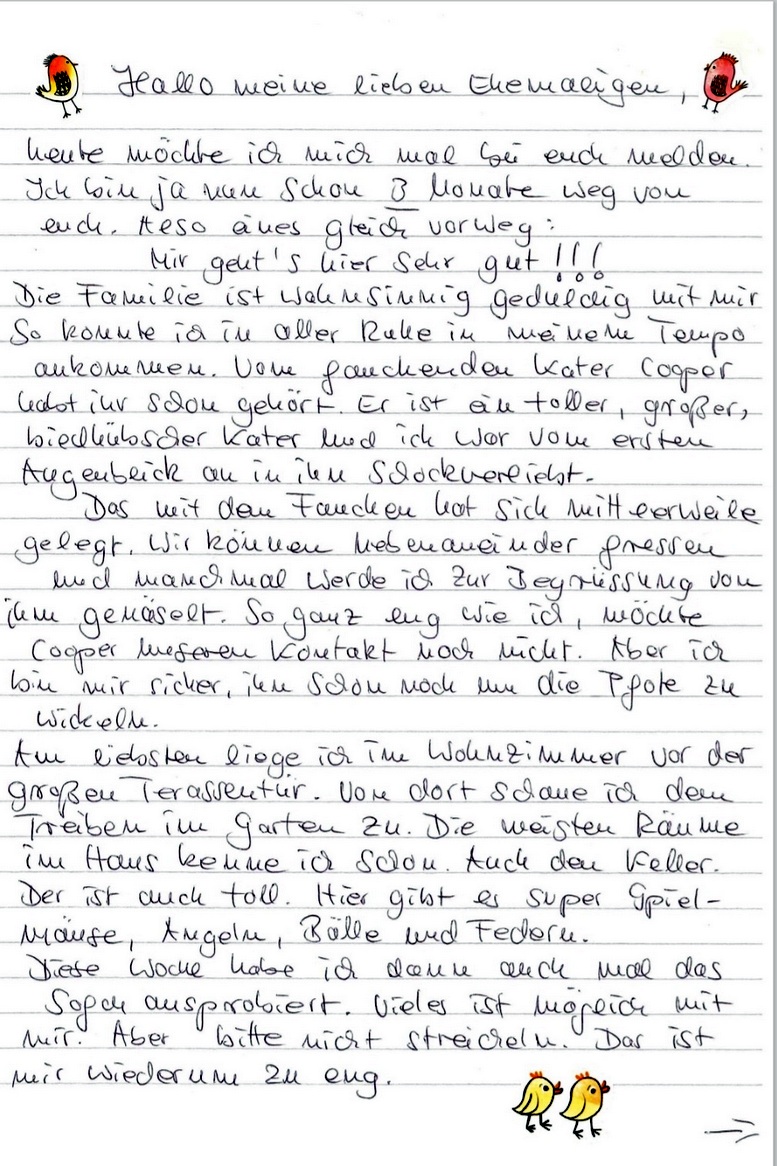 Hallo meine lieben Ehemaligen,
heute möchte ich mich mal bei euch melden.
Ich bin ja nun schon 3 Monate weg von
euch. Also eines gleich vorweg:
Mir geht's hier sehr gut !!!
Die Familie ist wahnsinnig geduldig mit mir
So konnte ich in aller Ruhe in meinem Tempo
ankommen. Vom fauchenden Kater Cooper
habt ihr schon gehört. Er ist ein toller, großer,
bildhübscher Kater und ich war vom ersten
Augenblick an in ihn schockverliebt.
Das mit dem Fauchen hat sich mittlerweile
gelegt. Wir können nebeneinander fressen
und manchmal werde ich zur Begrüssung von
ihm genäselt. So ganz eng wie ich, möchte
Cooper unseren Kontakt noch nicht. Aber ich
bin mir sicher, ihn schon noch um die Pfote zu
wickeln.
Am liebsten liege ich im Wohnzimmer vor der
großen Terassentür. Von dort schaue ich dem
Treiben im Garten zu. Die meisten Räume
im Haus kenne ich schon. Auch den Keller.
Der ist auch toll. Hier gibt es super Spiel-
mäuse, Angeln, Bälle und Federn.
Diese Woche habe ich dann auch mal das
Sofa ausprobiert. Vieles ist möglich mit
mir. Aber bitte nicht streicheln. Das ist
mir wiederum zu eng.
→